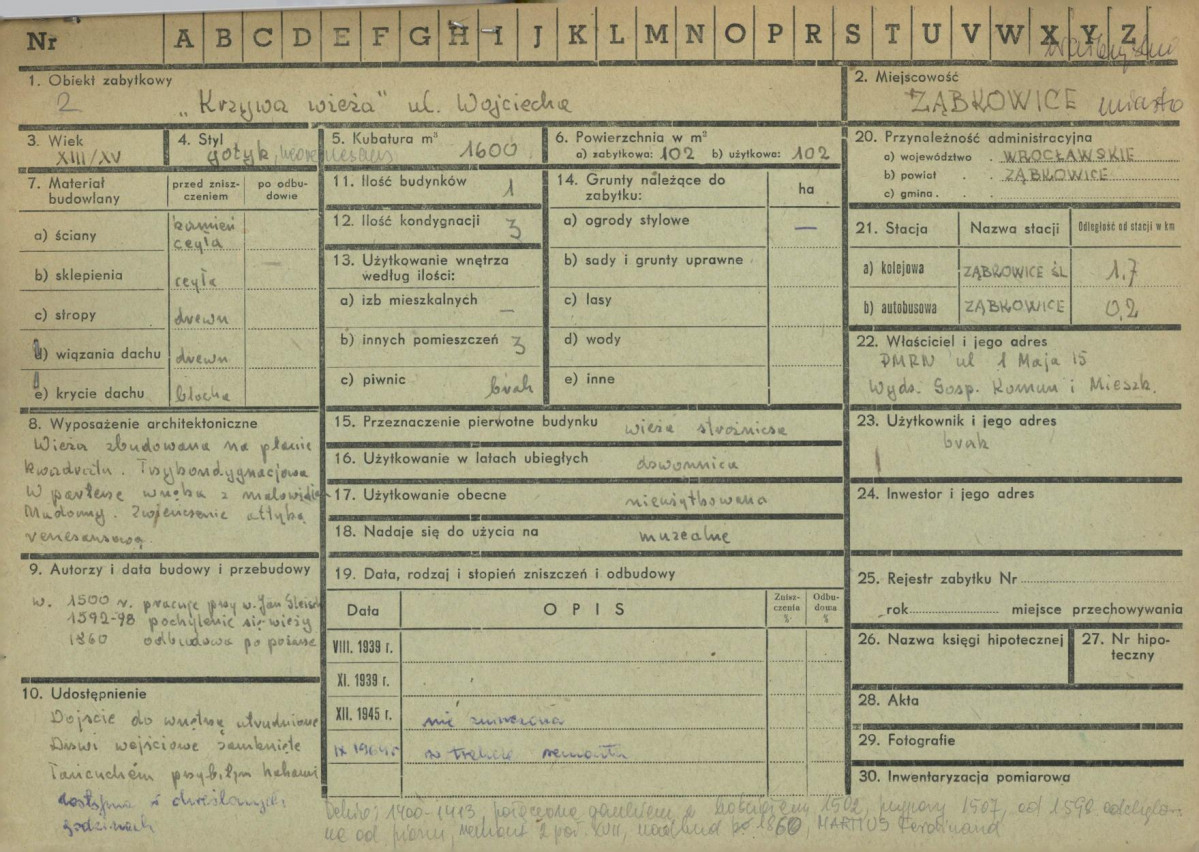 Nr A B C D E F G H I J K L M N O P R S T U V W X Y Z
1. Obiekt zabytkowy
2 „Krzywa wieża" ul. Wojciecha
2. Miejscowość
ZĄBKOWICE miasto
3. Wiek
XIII/XV
4. Styl
gotyk,
5. Kubatura m³
1600
6. Powierzchnia w m²
a) zabytkowa: 102 b) użytkowa: 102
20. Przynależność administracyjna
a) województwo . WROCŁAWSKIE
b) powiat . . ZĄBKOWICE
c) gmina . .
7. Materiał budowlany
przed zniszczeniem
po odbudowie
a) ściany kamień cegła
b) sklepienia cegła
c) stropy drewn
d) wiązania dachu drewn
e) krycie dachu blacha
11. Ilość budynków 1
12. Ilość kondygnacji 3
13. Użytkowanie wnętrza
według ilości:
a) izb mieszkalnych –
b) innych pomieszczeń 3
c) piwnic brak
14. Grunty należące do
zabytku:
ha
a) ogrody stylowe –
b) sady i grunty uprawne
c) lasy
d) wody
e) inne
21. Stacja Nazwa stacji Odległość od stacji w km
a) kolejowa ZĄBKOWICE ŚL 1,7
b) autobusowa ZĄBKOWICE 0,2
22. Właściciel i jego adres
PMRN ul 1 Maja 15
Wydz. Gosp. Komun i Mieszk.
8. Wyposażenie architektoniczne
Wieża zbudowana na planie
kwadratu. Trzykondygnacjowa
W parterze wnęka z malowidłem
Madonny. Zwieńczenie attyką
renesansową.
15. Przeznaczenie pierwotne budynku wieża strażnicza
16. Użytkowanie w latach ubiegłych dzwonnica
17. Użytkowanie obecne nieużytkowana
18. Nadaje się do użycia na muzealne
23. Użytkownik i jego adres
brak
24. Inwestor i jego adres
9. Autorzy i data budowy i przebudowy
w. 1500 r. pracuje przy w. Jan
1592-98 pochylenie się wieży
1860 odbudowa po pożarze
19. Data, rodzaj i stopień zniszczeń i odbudowy
Data OPIS Zniszczenia % Odbudowa %
VIII. 1939 r.
XI. 1939 r.
XII. 1945 r. nie zniszczona
w trakcie remontu
25. Rejestr zabytku Nr
rok miejsce przechowywania
26. Nazwa księgi hipotecznej
27. Nr hipoteczny
28. Akta
29. Fotografie
30. Inwentaryzacja pomiarowa
10. Udostępnienie
Dojście do wnętrza utrudnione
Drzwi wejściowe zamknięte
łańcuchem przybitym hakami
dostępna w określonych
godzinach
1400-1413 połączona gankiem z kościołem, 1502, 1507, od 1598 odchylona
od pionu, remont 2 poł. XVII, 1860, MARTIUS Ferdinand